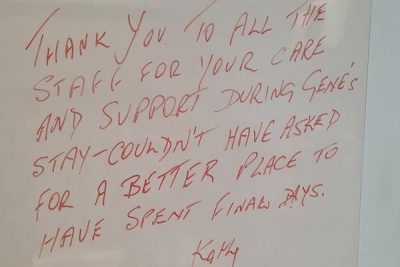 THANK YOU TO ALL THE
STAFF FOR YOUR CARE
AND SUPPORT DURING GENE'S
STAY - COULDN'T HAVE ASKED
FOR A BETTER PLACE TO
HAVE SPENT FINAL DAYS.
Kathy